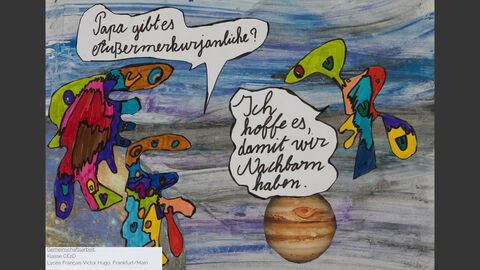 Papa gibt es
Außermerkurjanliche?
Ich
hoffe es,
damit wir
Nachbarn
haben.
Gemeinschaftsarbeit
Klasse CE2D
Lycée Français Victor Hugo, Frankfurt/Main